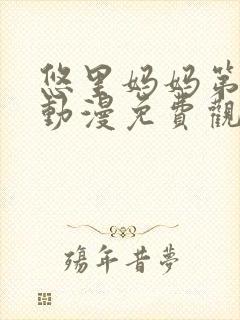 悠里妈妈第
動漫免費觀
殤年昔夢